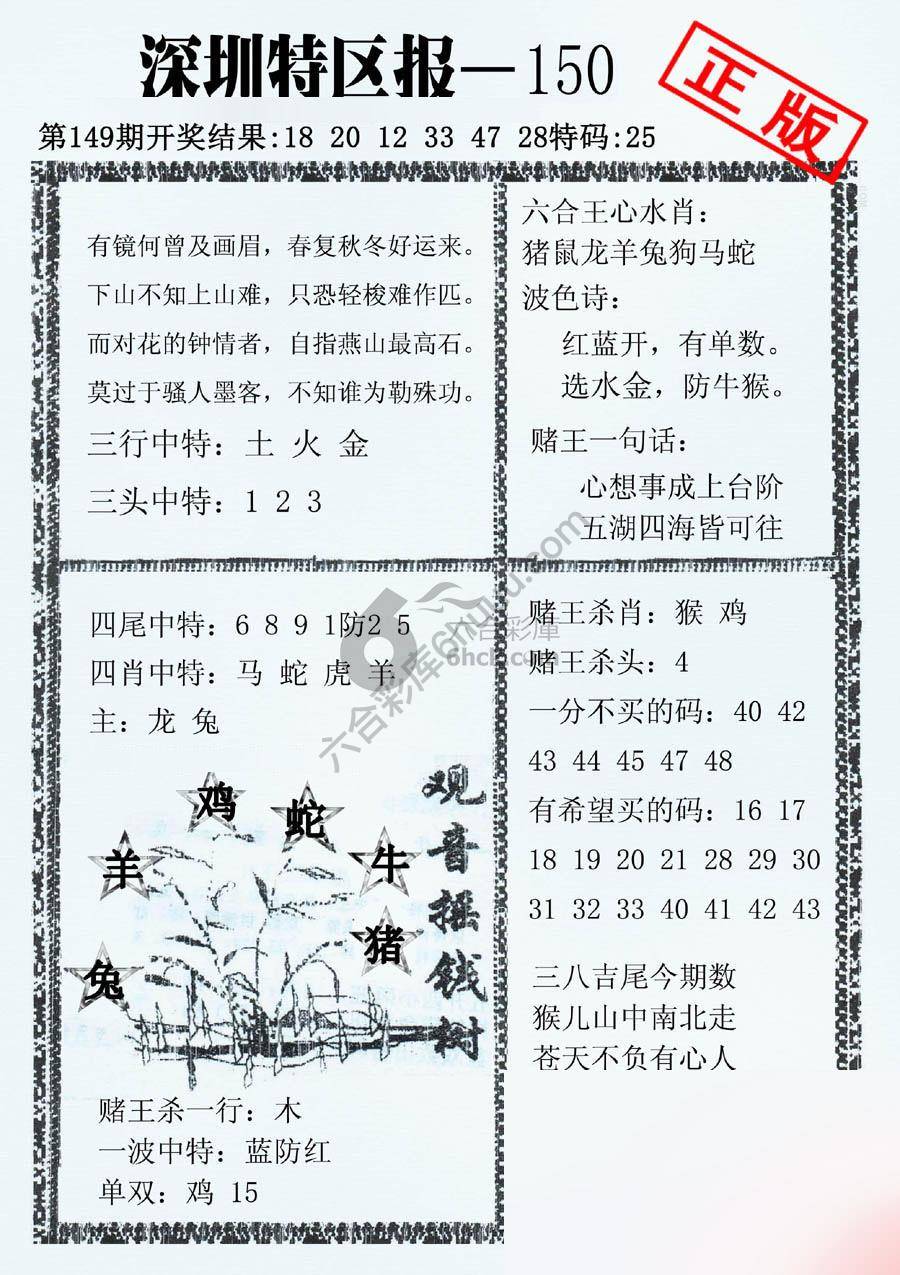 深圳特区报—150
正版
第149期开奖结果:18 20 12 33 47 28特码:25
有镜何曾及画眉，春复秋冬好运来。
下山不知上山难，只恐轻梭难作匹。
而对花的钟情者，自指燕山最高石。
莫过于骚人墨客，不知谁为勒殊功。
三行中特：土 火 金
三头中特：1 2 3
六合王心水肖：
猪鼠龙羊兔狗马蛇
波色诗：
红蓝开，有单数。
选水金，防牛猴。
赌王一句话：
心想事成上台阶
五湖四海皆可往
四尾中特：6 8 9 1防2 5
四肖中特：马 蛇 虎 羊
主：龙 兔
鸡
蛇
羊
牛
猪
兔
观音摇钱树
赌王杀一行：木
一波中特：蓝防红
单双：鸡 15
赌王杀肖：猴 鸡
赌王杀头：4
一分不买的码：40 42
43 44 45 47 48
有希望买的码：16 17
18 19 20 21 28 29 30
31 32 33 40 41 42 43
三八吉尾今期数
猴儿山中南北走
苍天不负有心人
六合彩库
六合彩库6htuku.com